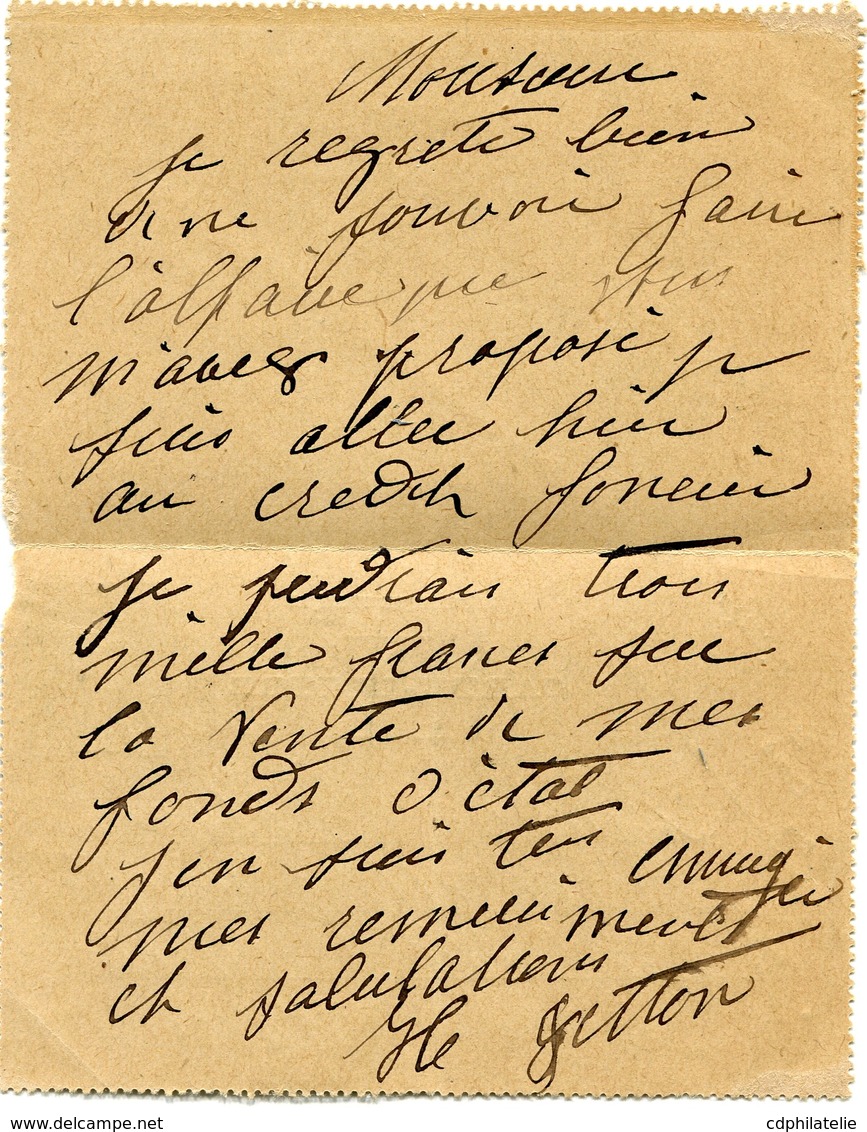 Monsieur
je regrete bien
de ne pouvoir faire
l'affaire que vous
m'avez proposé je
suis allée hier
au credit foncier
je perdrais trois
mille francs sur
la vente de mes
fonds d'état
j'en suis très ennuyée
mes remerciments
et salutations
cdphilatelie